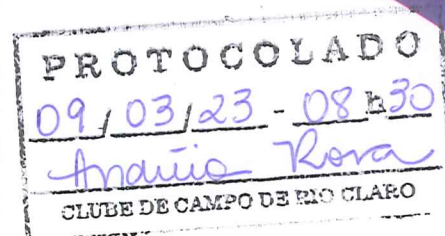 PROTOCOLADO
09/03/23 - 08 h 30
Rosa
CLUBE DE CAMPO DE RIO CLARO